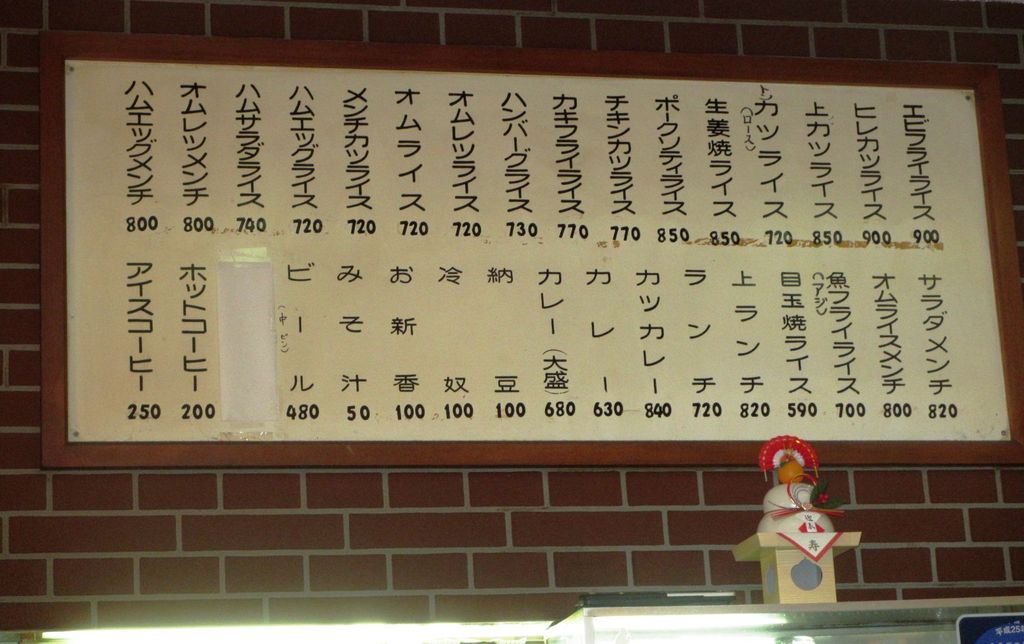 エビフライライス 900
ヒレカツライス 900
上カツライス 850
トンカツライス (ロース) 720
生姜焼ライス 850
ポークソティライス 850
チキンカツライス 770
カキフライライス 770
ハンバーグライス 730
オムレツライス 720
オムライス 720
メンチカツライス 720
ハムエッグライス 720
ハムサラダライス 740
オムレツメンチ 800
ハムエッグメンチ 800
サラダメンチ 820
オムライスメンチ 800
魚フライライス (アジ) 700
目玉焼ライス 590
上ランチ 820
ランチ 720
カツカレー 840
カレー 630
カレー(大盛) 680
納豆 100
冷奴 100
お新香 100
みそ汁 50
ビール (中ビン) 480
ホットコーヒー 200
アイスコーヒー 250
寿
平成25